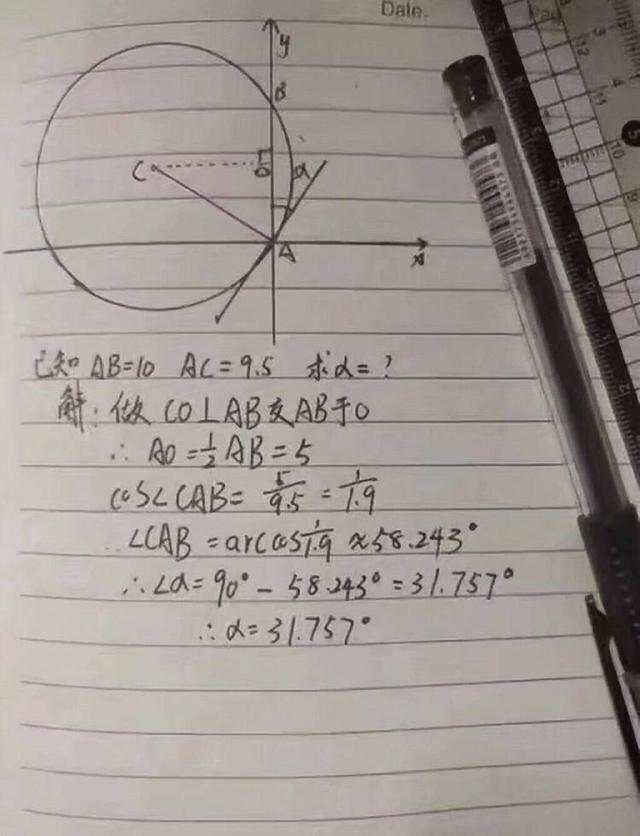 Date.
y
B
C
O
α
A
x
已知 AB=10 AC=9.5 求α=?
解:做 CO⊥AB交AB于O
∴ AO=½AB=5
cos∠CAB= 5/9.5 = 1/1.9
∴∠CAB =arccos1/1.9 ≈58.243°
∴∠α=90°-58.243°=31.757°
∴α=31.757°